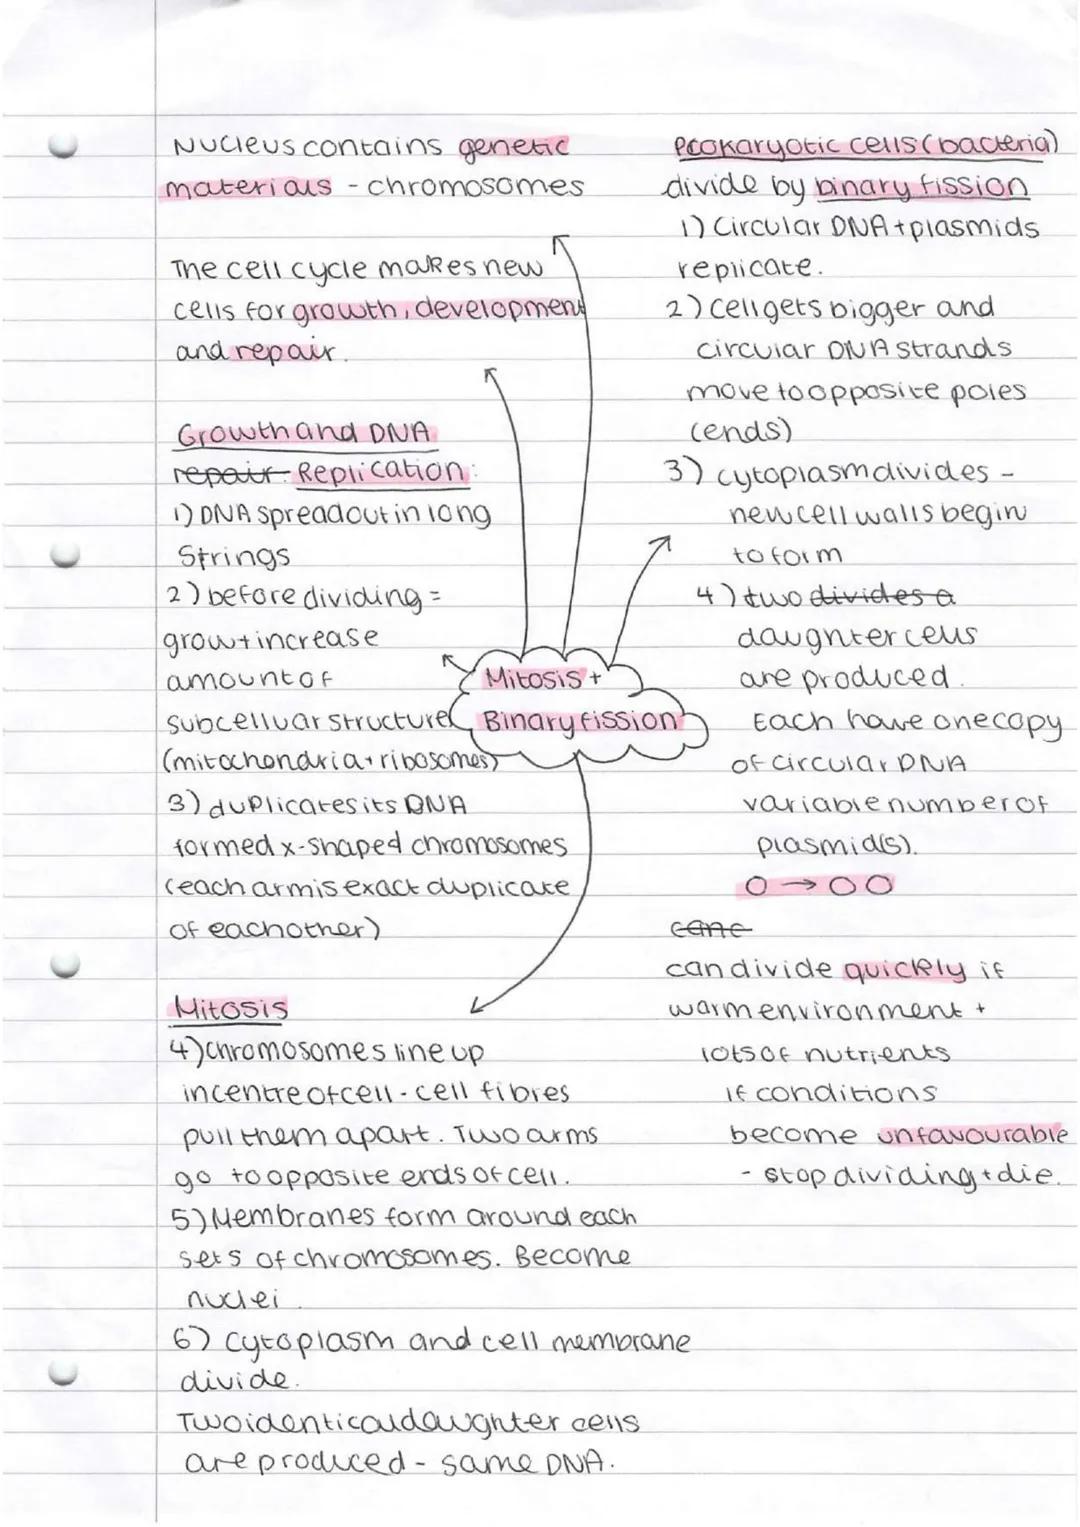 Nucleus contains genetic
materials - chromosomes
The cell cycle makes new
cells for growth, development
and repair.
Growth and DNA
repair: Replication:
1) DNA spread out in long
Strings
2) before dividing =
grow + increase
amount of
subcelluar structure
(mitochondria + ribosomes)
3) duplicates its DNA
formed x-shaped chromosomes
(each arm is exact duplicate
of eachother)
Mitosis
4) Chromosomes line up
in centre of cell - cell fibres
pull them apart. Two arms
go to opposite ends of cell.
5) Membranes form around each
sets of chromosomes. Become
nuclei.
6) Cytoplasm and cell membrane
divide.
Two identical daughter cells
are produced - same DNA.
Mitosis +
Binary fission
Prokaryotic cells (bacteria)
divide by binary fission
1) Circular DNA + plasmids
replicate.
2) Cell gets bigger and
circular DNA strands
move to opposite poles
(ends)
3) cytoplasm divides -
new cell walls begin
to form
4) two divides a
daughter cells
are produced.
Each have one copy
of circular DNA
variable number of
plasmid(s).
O → O O
canc
can divide quickly if
warm environment +
lots of nutrients
if conditions
become unfavourable
- stop dividing + die.